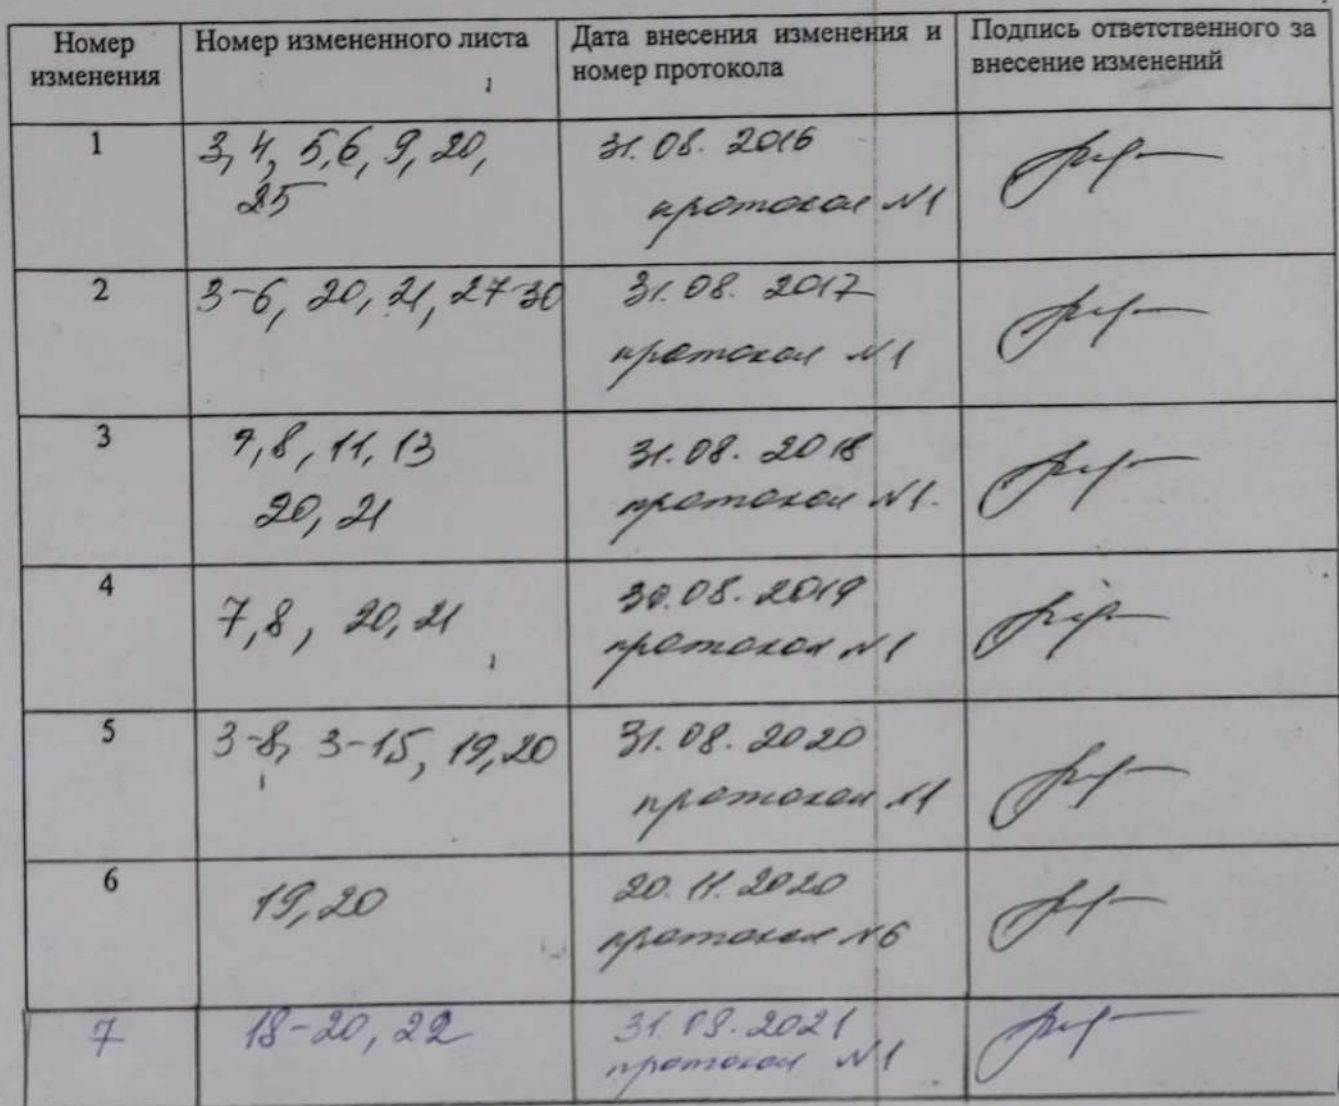 Номер изменения
Номер измененного листа
Дата внесения изменения и номер протокола
Подпись ответственного за внесение изменений
1
3, 4, 5,6, 9, 20,
25
31.08. 2016
протокол №1
2
3-6, 20, 21, 27-30
31.08. 2017
протокол №1
3
7,8, 11, 13
20, 21
31.08. 2018
протокол №1.
4
7,8, 20, 21
30.08. 2019
протокол №1
5
3-8, 3-15, 19,20
31.08. 2020
протокол №1
6
19,20
20.11.2020
протокол №6
7
18-20, 22
31.08.2021
протокол №1